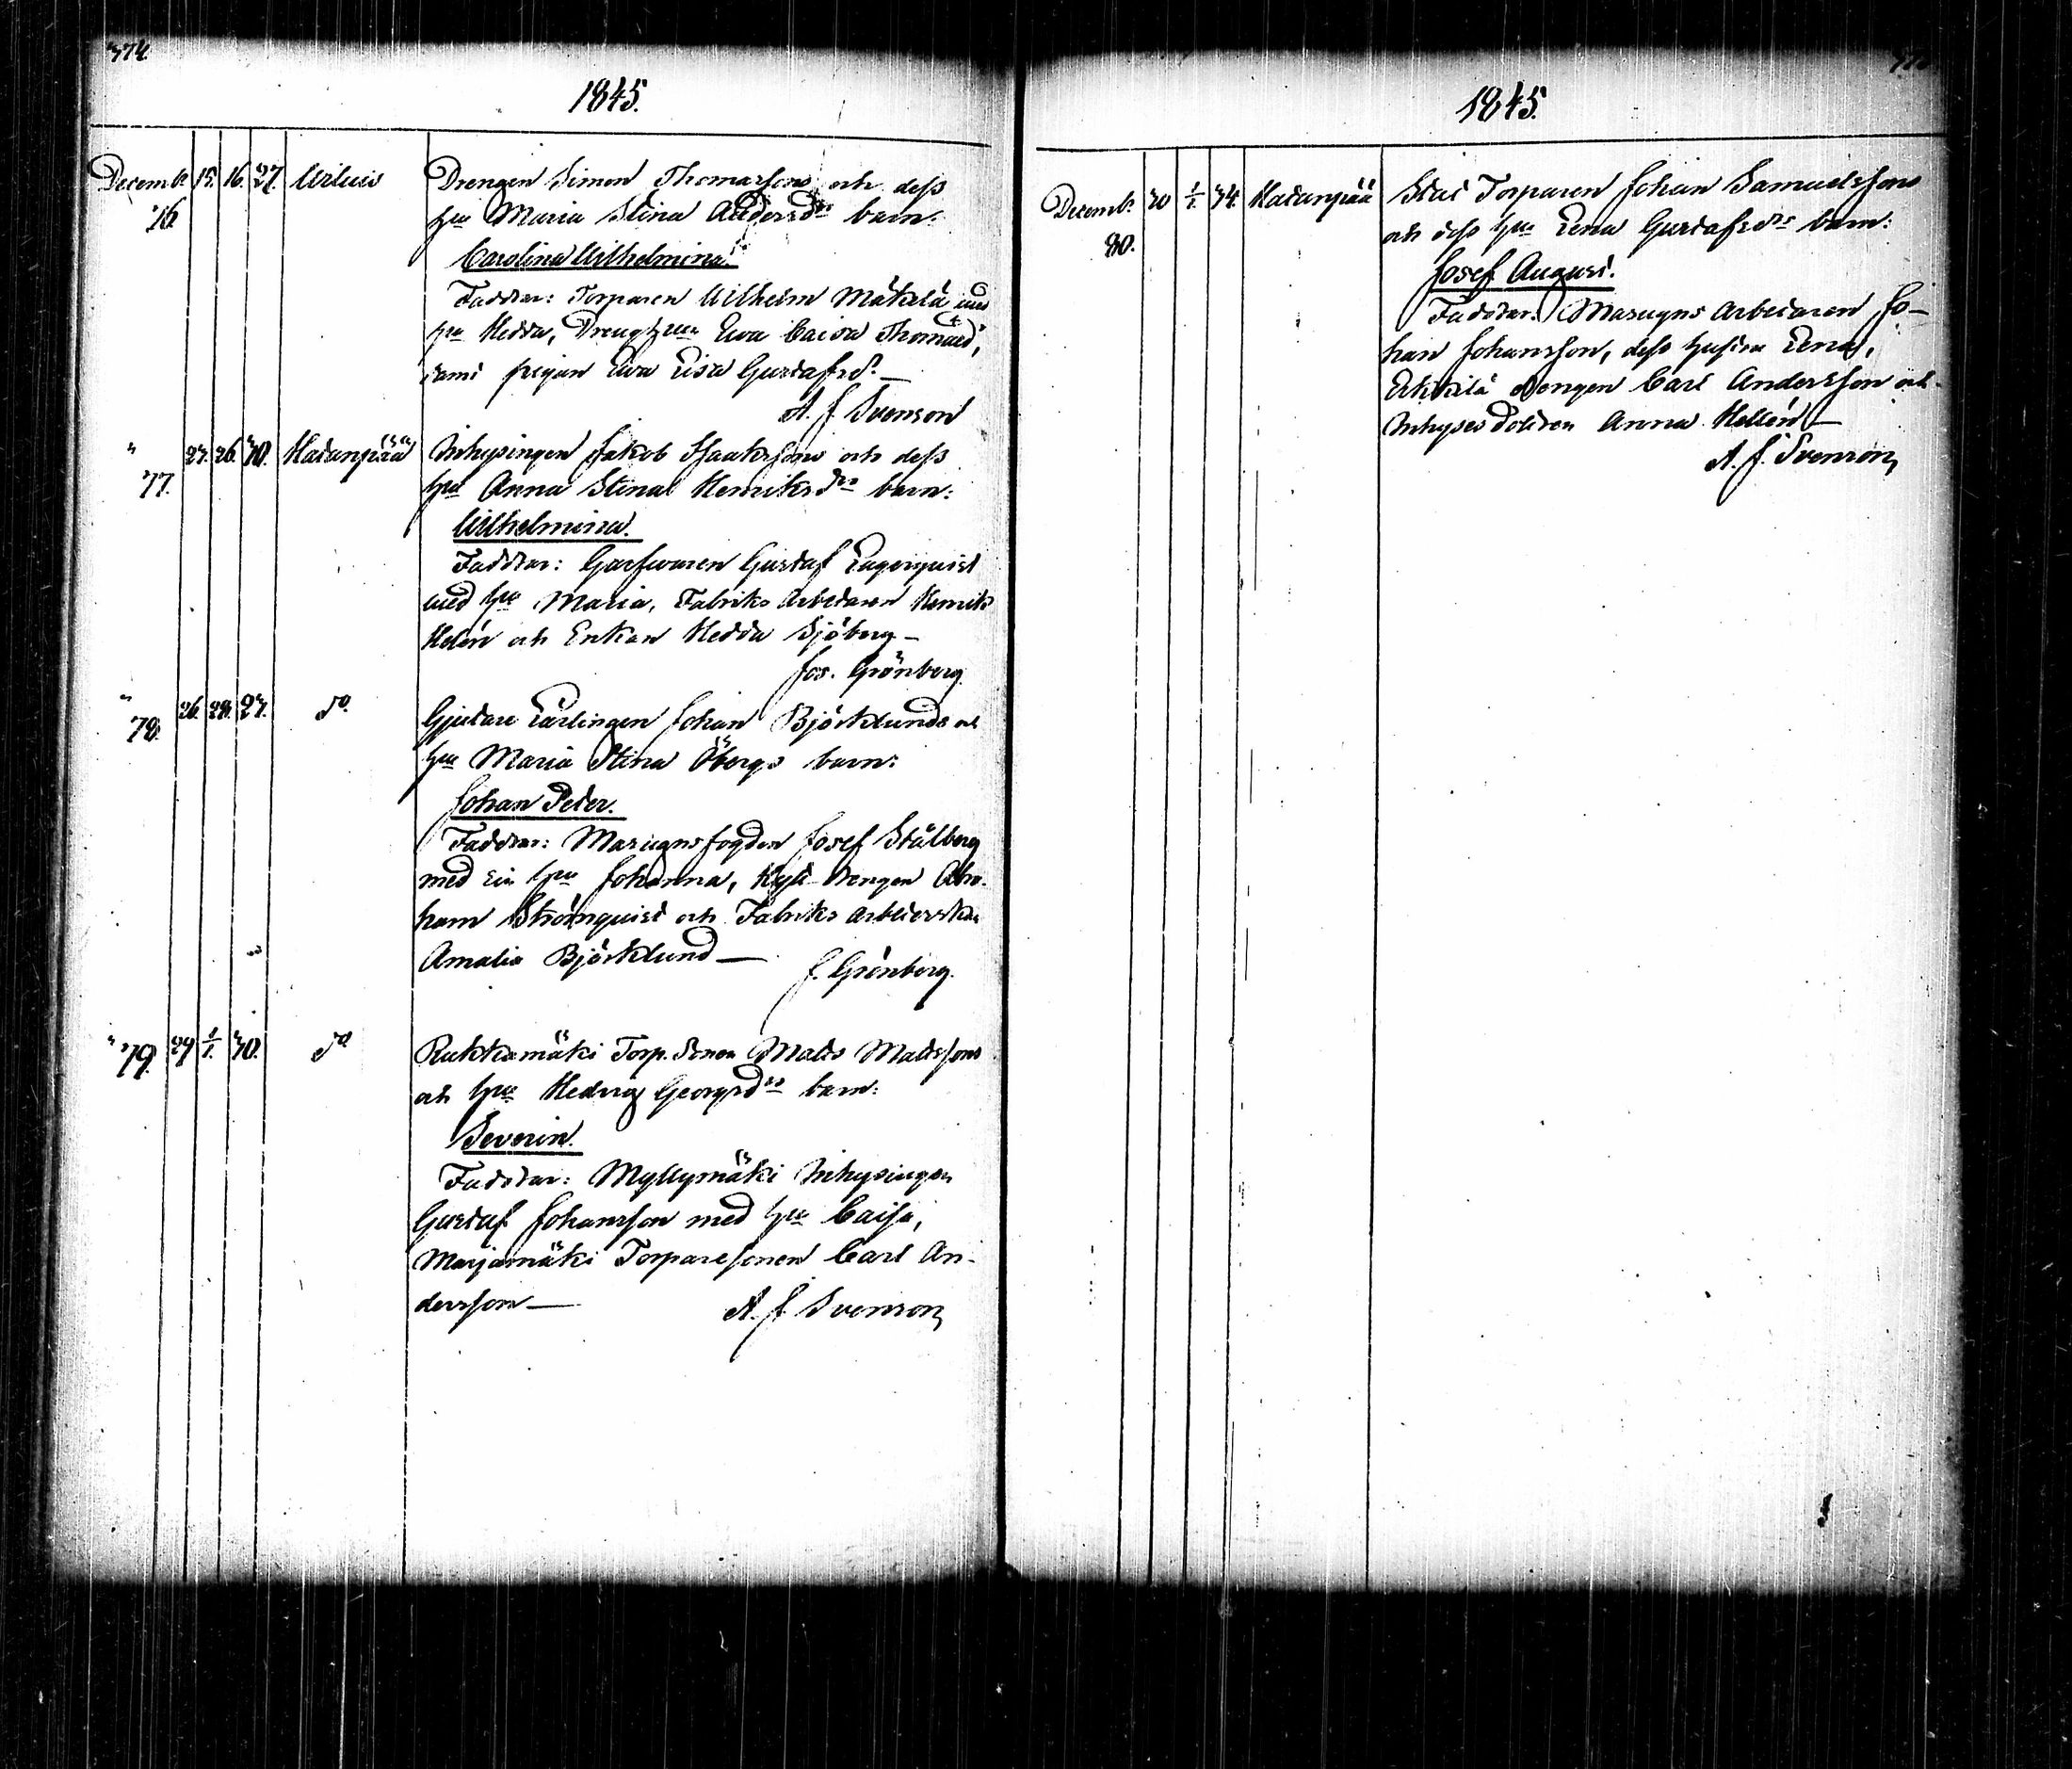 374.
1845.
Decemb. 15. 16. 27. Wiluis Drengen Simon Thomassons och dess
76. hu Maria Stina Andersdrs barn:
Carolina Wilhelmina.
Faddrar: Torparen Wilhelm Mäkelä med
hu Hedda, Dreng hun Ewa Caisa Thomasd,
samt pigan Ewa Lisa Gustafsd. —
A. J. Svenson
" 23. 26. 40. Hatanpää Inhysingen Jakob Isaakssons och dess
77. hu Anna Stina Henriksdrs barn:
Wilhelmina.
Faddrar: Garfwaren Gustaf Lagerquist
med hu Maria, Fabriks Arbetaren Henrik
Helén och Enkan Hedda Sjöberg —
Jos. Grönberg.
" 26. 28. 27. do. Gjutare Lärlingen Johan Björklunds och
78. hu Maria Stina Öbergs barn:
Johan Peter.
Faddrar: Masugnsfogden Josef Stålberg
med sin hu Johanna, drengen Abra-
ham Strömquist och Fabriks arbeterskan
Amalia Björklund —
J. Grönberg.
" 79. 29 1/1. 30. do Rukkamäki Torp. Sonen Matts Mattssons
och hu Hedvig Georgsdrs barn:
Severin.
Faddrar: Myllymäki Inhysingen
Gustaf Johansson med hu Caisa,
Marjamäki Torparesonen Carl An-
dersson — A. J. Svenson
1845.
Decemb. 30 1/1. 34. Hatanpää Torparen Johan Samuelssons
80. och dess hu Lena Gustafsdrs barn:
Josef August.
Faddrar: Masugns Arbetaren Jo-
han Johansson, dess hustru Lena,
Erkkilä drengen Carl Andersson och
Inhyses dottren Anna Hellén —
A. J. Svenson